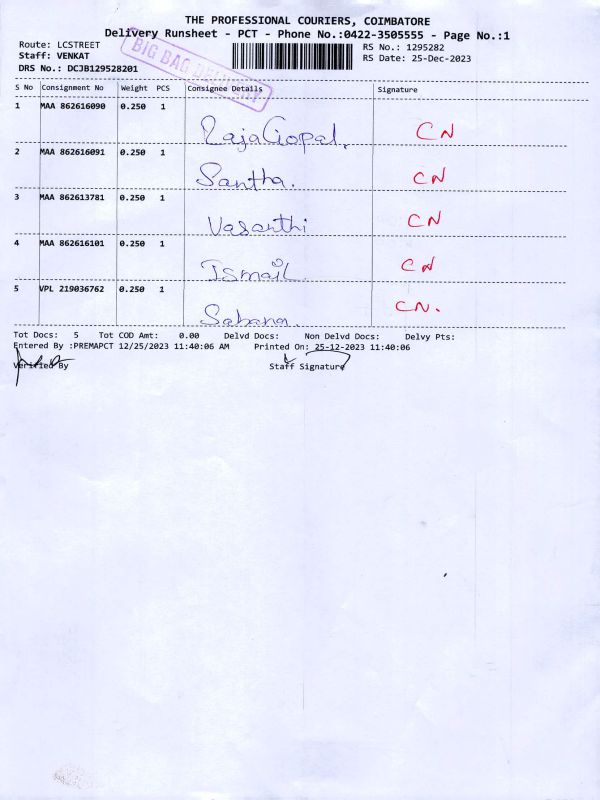 THE PROFESSIONAL COURIERS, COIMBATORE
Delivery Runsheet - PCT - Phone No.:0422-3505555 - Page No.:1
Route: LCSTREET RS No.: 1295282
Staff: VENKAT RS Date: 25-Dec-2023
DRS No.: DCJB129528201
BIG BAG DELIVERY
S No Consignment No Weight PCS Consignee Details Signature
1 MAA 862616090 0.250 1
RajaGopal. CN
2 MAA 862616091 0.250 1
Santha. CN
3 MAA 862613781 0.250 1
Vasanthi CN
4 MAA 862616101 0.250 1
Ismail. CN
5 VPL 219036762 0.250 1
Sahana. CN.
Tot Docs: 5 Tot COD Amt: 0.00 Delvd Docs: Non Delvd Docs: Delvy Pts:
Entered By :PREMAPCT 12/25/2023 11:40:06 AM Printed On: 25-12-2023 11:40:06
Verified By Staff Signature